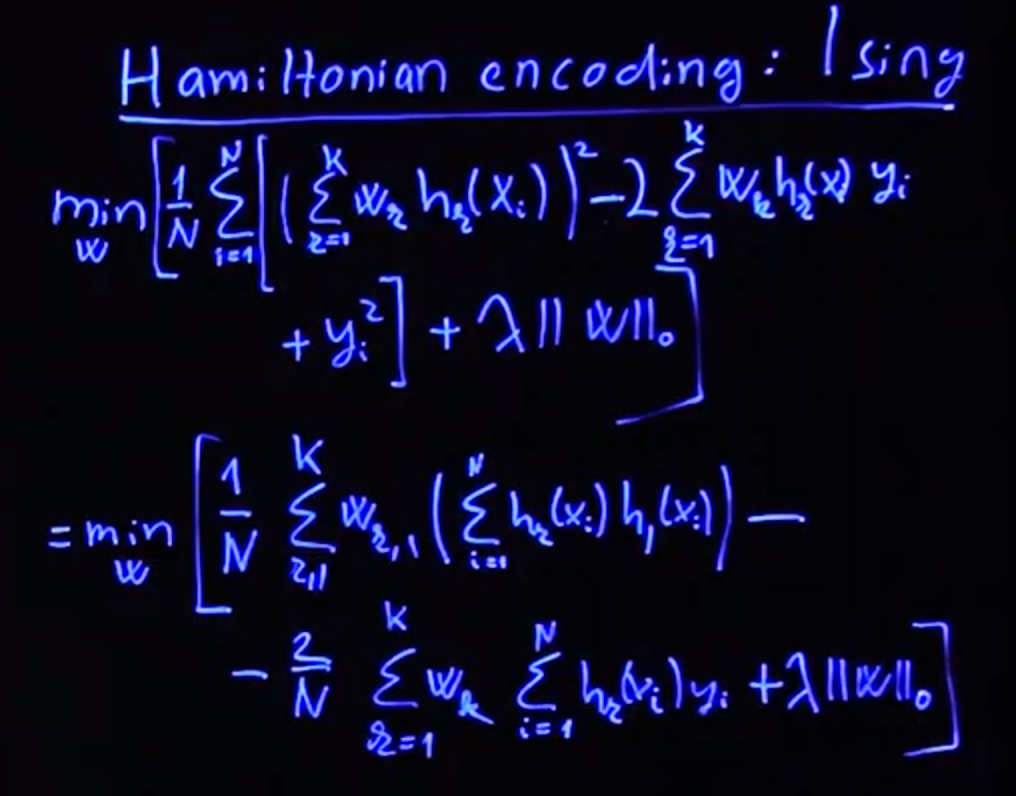 Hamiltonian encoding: Ising
min_w [ 1/N Σ_{i=1}^{N} [ ( Σ_{k=1}^{K} w_k h_k(x_i) )² − 2 Σ_{k=1}^{K} w_k h_k(x) y_i
+ y_i² ] + λ || w ||_0 ]
= min_w [ 1/N Σ_{k,l}^{K} w_{k,l} ( Σ_{i=1}^{N} h_k(x_i) h_l(x_i) ) −
− 2/N Σ_{k=1}^{K} w_k Σ_{i=1}^{N} h_k(x_i) y_i + λ || w ||_0 ]